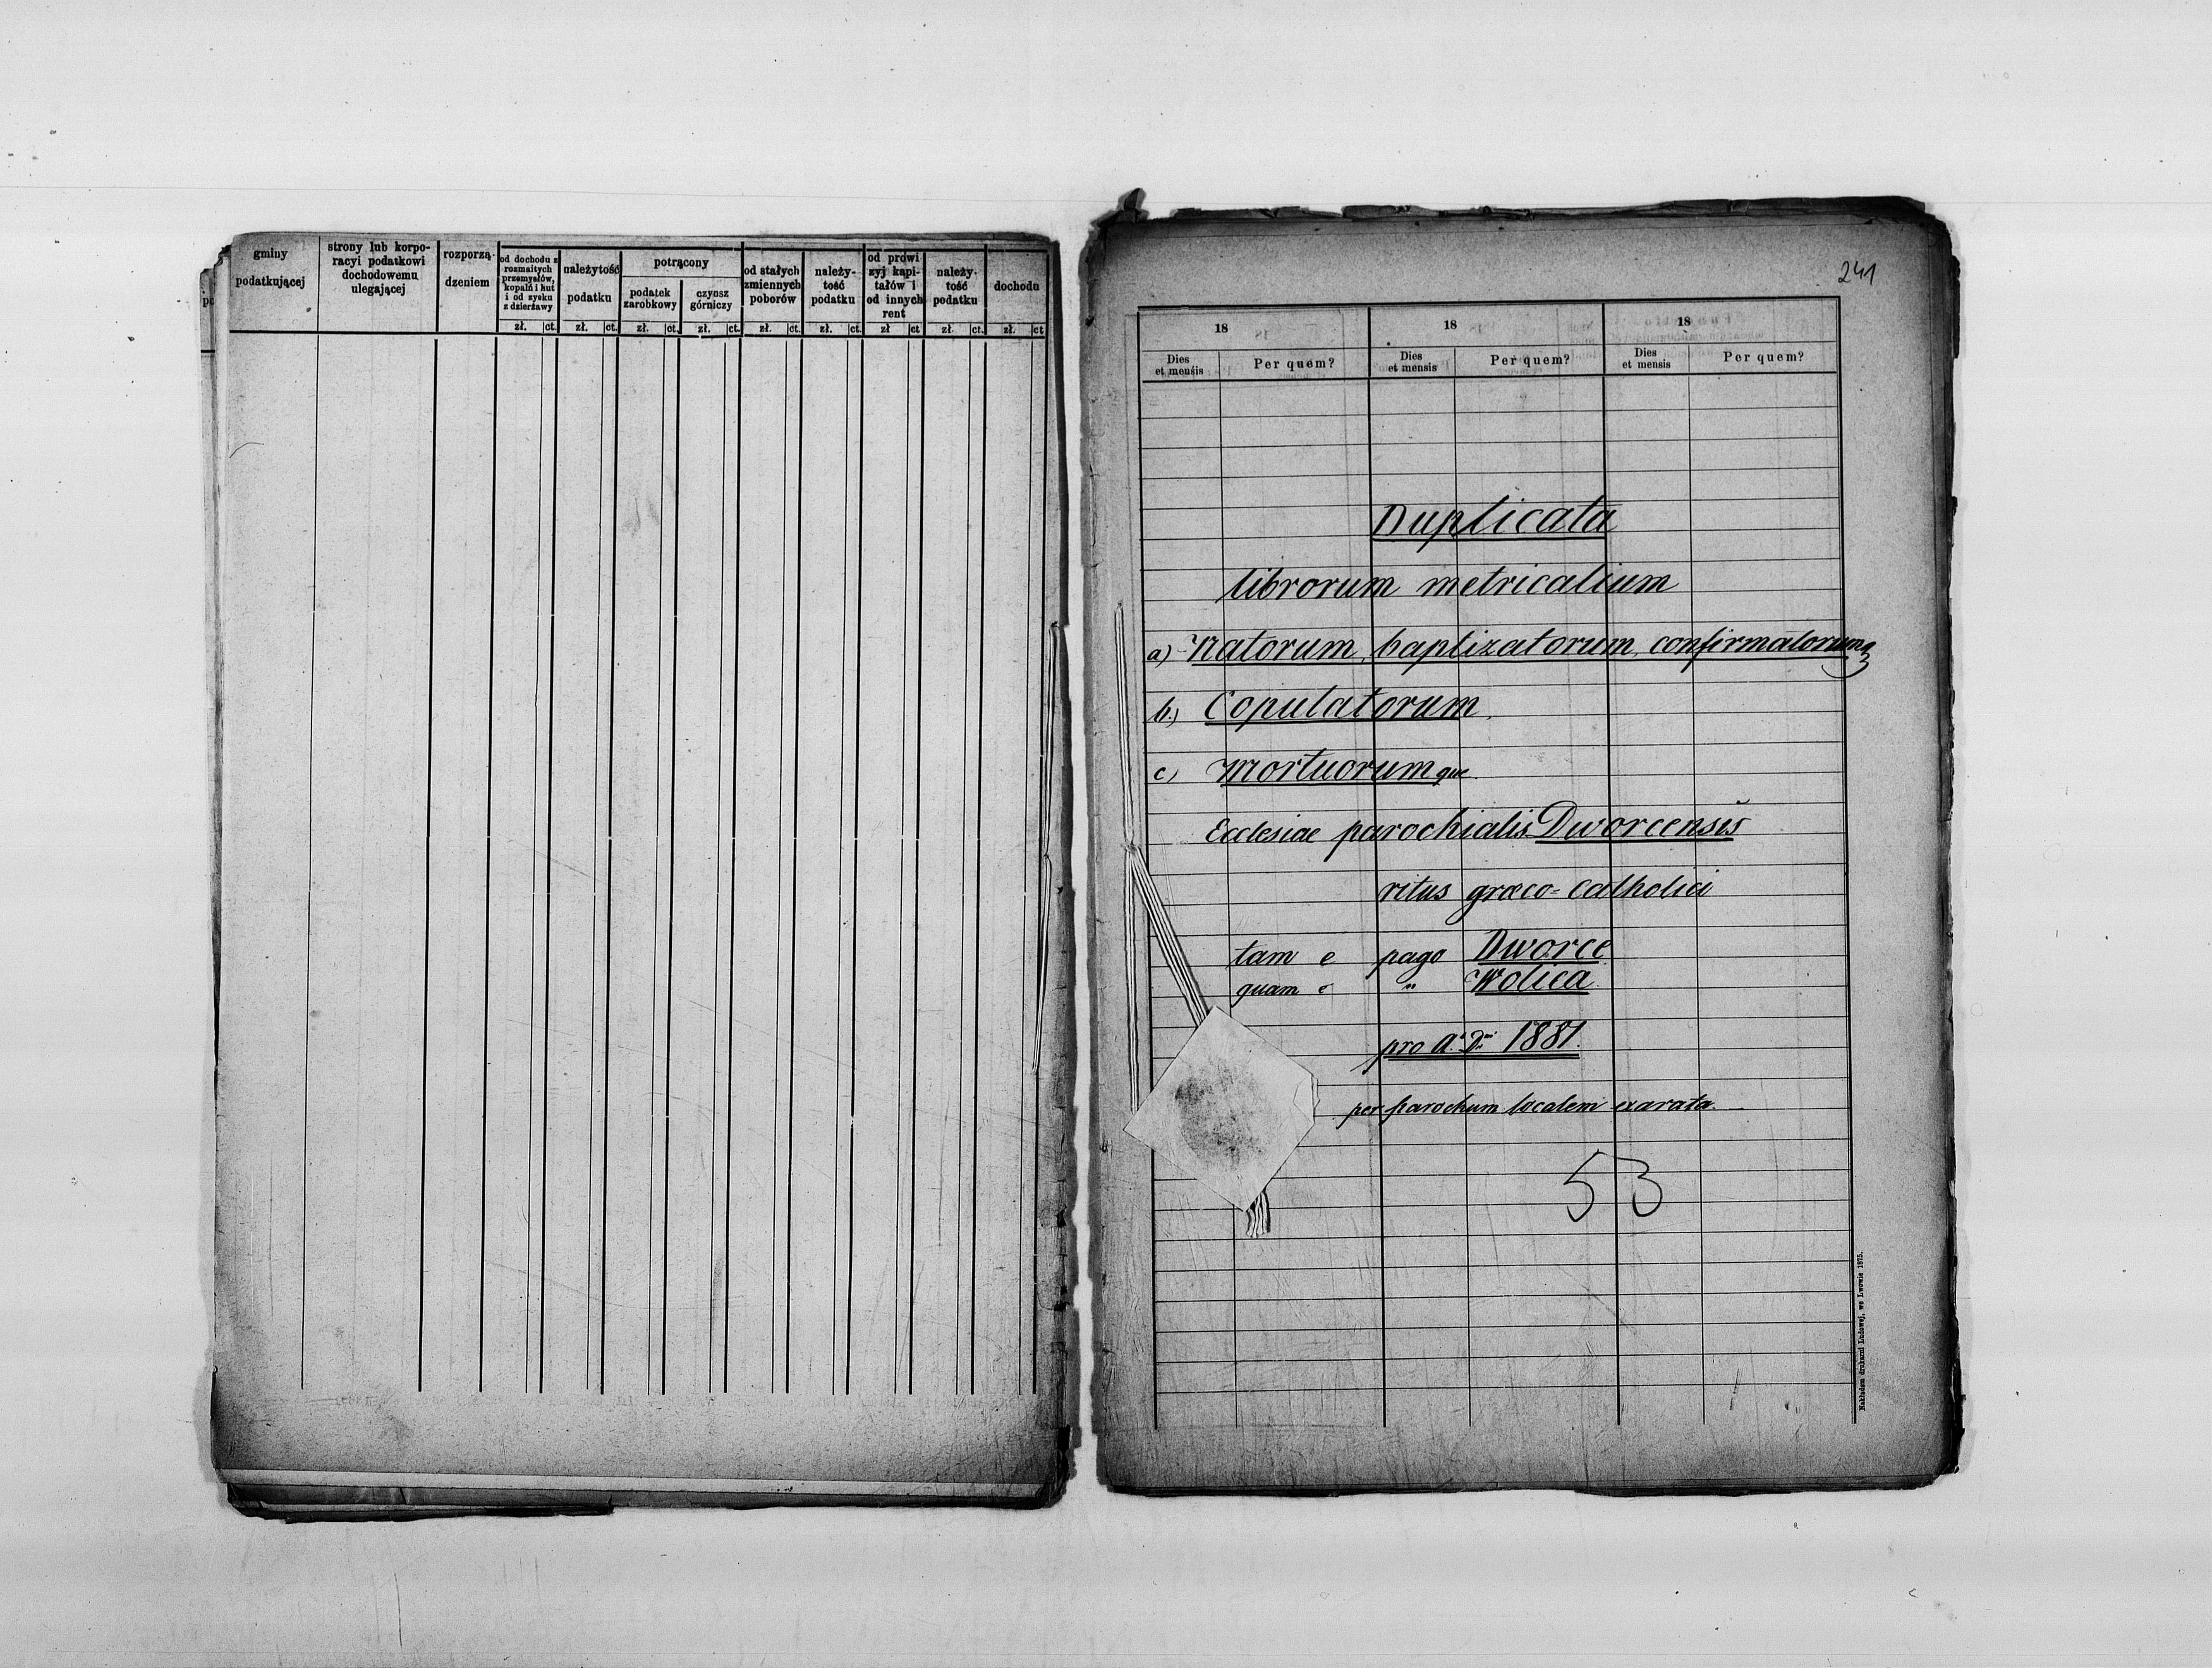 gminy
podatkującej
strony lub korpo-
racyi podatkowi
dochodowemu
ulegającej
rozporzą-
dzeniem
od dochodu z
rozmaitych
przemysłów,
kopalń i hut
i od zysku
z dzierżawy
zł. ct.
należytość
podatku
zł. ct.
potrącony
podatek
zarobkowy
zł. ct.
czynsz
górniczy
zł. ct.
od stałych
zmiennych
poborów
zł. ct.
należy-
tość
podatku
zł. ct.
od prowi
zyj kapi-
tałów i
od innych
rent
zł ct
należy-
tość
podatku
zł. ct.
dochodu
zł. ct
241
18 18 18
Dies
et mensis
Per quem?
Dies
et mensis
Per quem?
Dies
et mensis
Per quem?
Duplicata
librorum metricalium
a) Natorum, baptizatorum, confirmatorum
b.) Copulatorum
c) Mortuorumque
Ecclesiae parochialis Dworcensis
ritus græco-catholici
tam e pago Dworce
quam e " Wolica
pro A. D. 1881.
per parochum localem exarata.
53
Nakładem drukarni Ludowej, we Lwowie 1875.